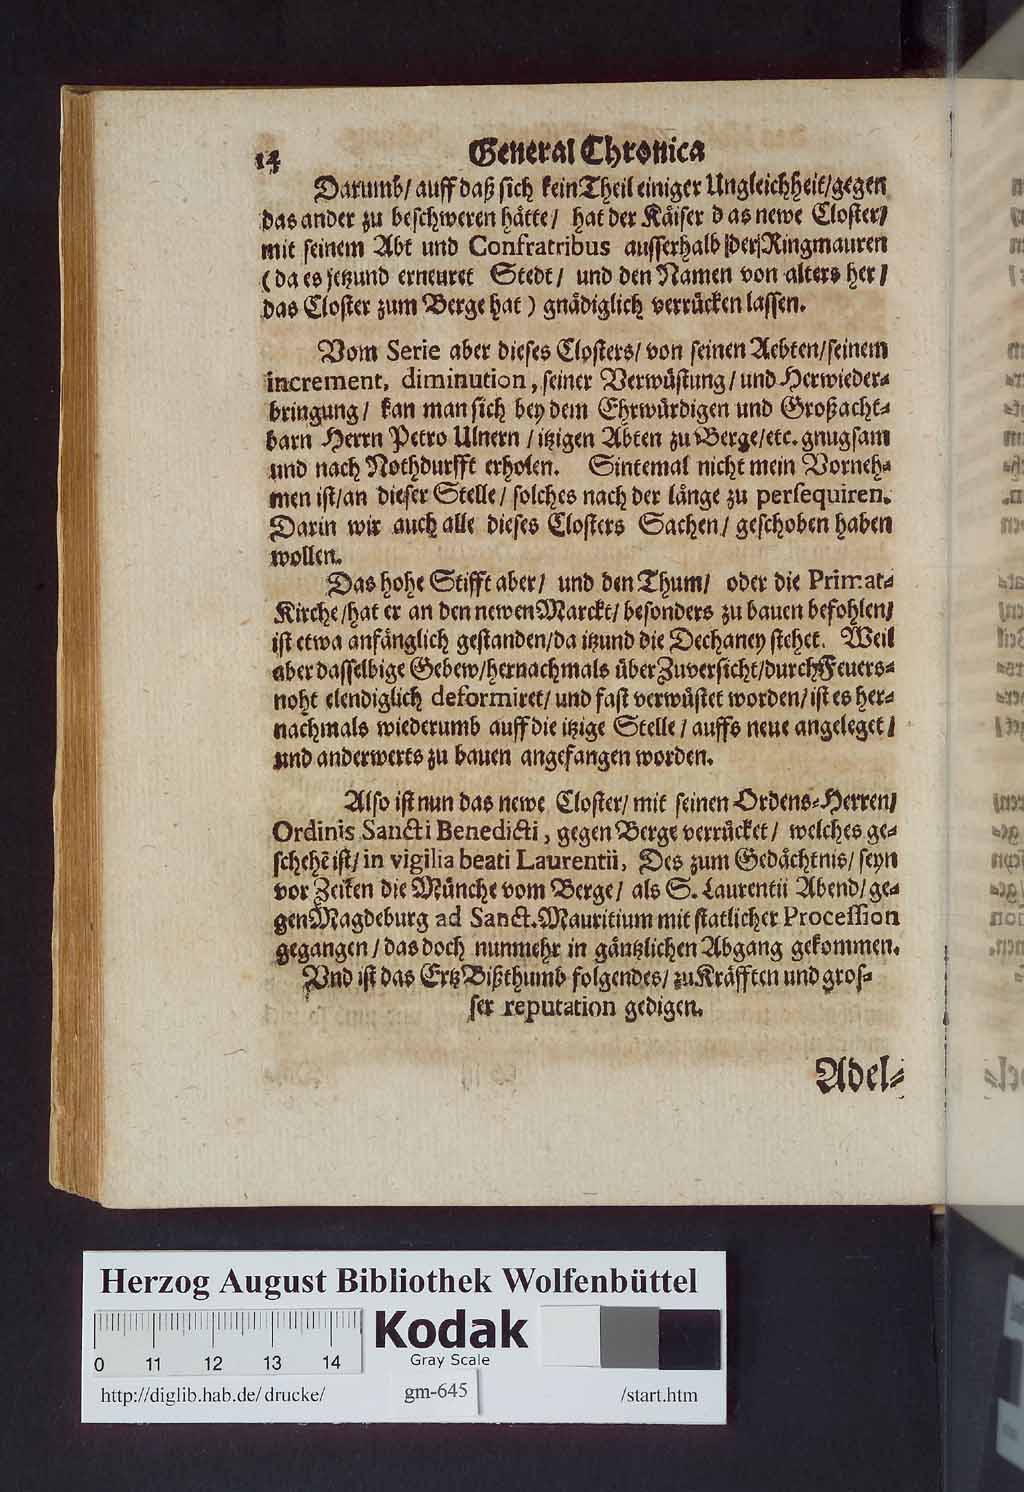 14 General Chronica
Darumb/ auff daß sich kein Theil einiger Ungleichheit/gegen
das ander zu beschweren hätte/ hat der Käiser das newe Closter/
mit seinem Abt und Confratribus ausserhalb der Ringmauren
(da es jetzund erneuret Stedt/ und den Namen von alters her/
das Closter zum Berge hat) gnädiglich verrücken lassen.
Vom Serie aber dieses Closters/ von seinen Aebten/seinem
increment, diminution, seiner Verwüstung/ und Herwieder-
bringung/ kan man sich bey dem Ehrwürdigen und Großacht-
barn Herrn Petro Ulnern / itzigen Abten zu Berge/etc. gnugsam
und nach Nothdurfft erholen. Sintemal nicht mein Vorneh-
men ist/an dieser Stelle/ solches nach der länge zu persequiren.
Darin wir auch alle dieses Closters Sachen/ geschoben haben
wollen.
Das hohe Stifft aber/ und den Thum/ oder die Primat-
Kirche/hat er an den newen Marckt/ besonders zu bauen befohlen/
ist etwa anfänglich gestanden/da itzund die Dechaney stehet. Weil
aber dasselbige Gebew/hernachmals über Zuversicht/durch Feuers-
noht elendiglich deformiret/ und fast verwüstet worden/ ist es her-
nachmals wiederumb auff die itzige Stelle / auffs neue angeleget/
und anderwerts zu bauen angefangen worden.
Also ist nun das newe Closter/ mit seinen Ordens-Herren/
Ordinis Sancti Benedicti, gegen Berge verrücket/ welches ge-
schehẽ ist/ in vigilia beati Laurentii, Des zum Gedächtnis/ seyn
vor Zeiten die Münche vom Berge/ als S. Laurentii Abend/ ge-
gen Magdeburg ad Sanct. Mauritium mit statlicher Procession
gegangen / das doch nunmehr in gäntzlichen Abgang gekommen.
Und ist das Ertz Bißthumb folgendes/ zu Kräfften und gros-
ser reputation gedigen.
Adel-
Herzog August Bibliothek Wolfenbüttel
Kodak
Gray Scale
0 11 12 13 14
http://diglib.hab.de/drucke/ gm-645 /start.htm